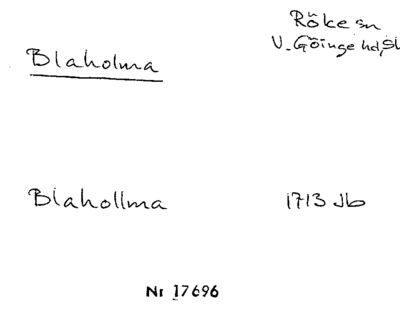 Röke sn
Blaholma
V. Göinge hd, Sk
Blahollma 1713 Jb
Nr 17696